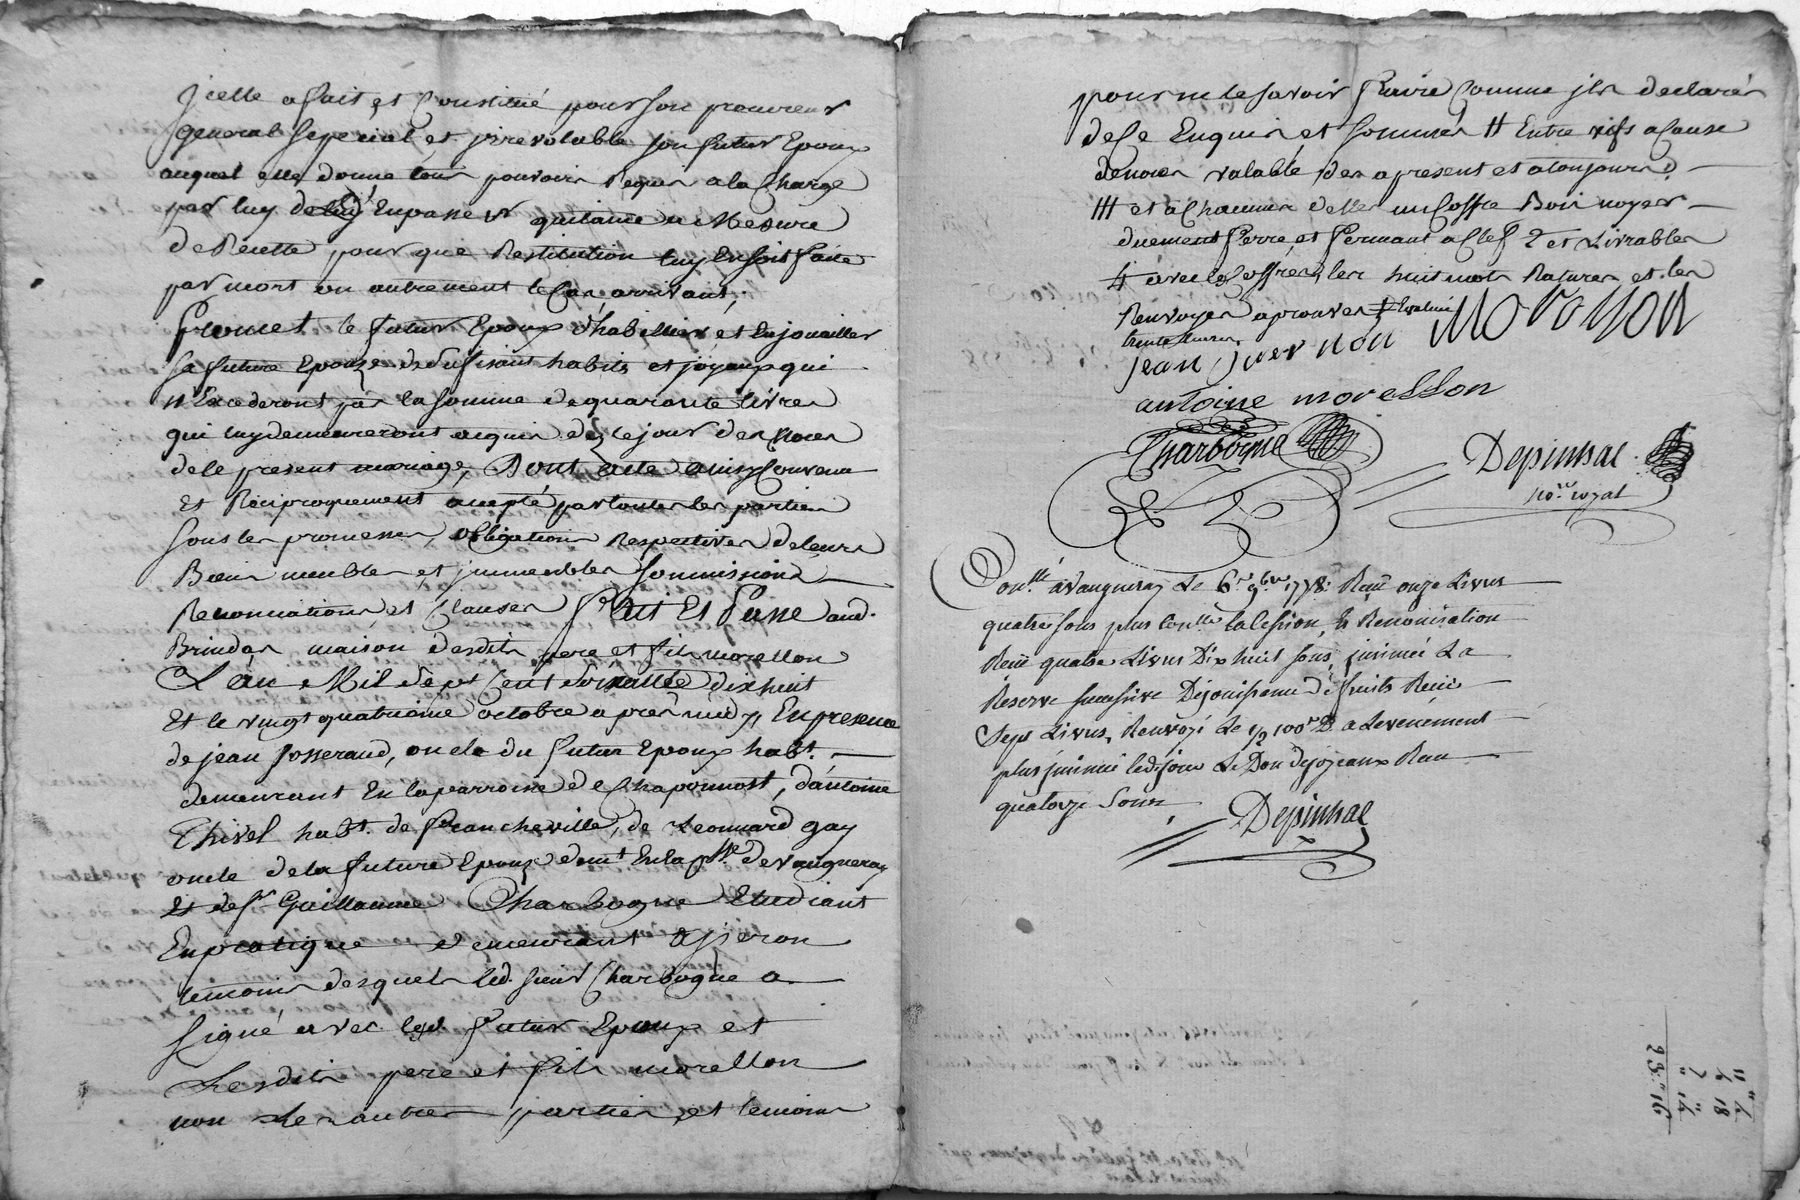 Jcelle a fait et Constitué pour son procureur
general special et jrrevolable son futur Epoux
auquel elle donne tous pouvoirs Requis a la Charge
par luy de luy En passer quitance a Mesure
de Recette pour que Restitution luy En soit faite
par mort ou autrement le Cas arrivant,
Promet le futur Epoux d'habiller et Enjouailler
sa future Epouze de sufisant habits et joyaux qui
n'Excederont pas la somme de quarante livres
qui luy demeureront acquis dès le jour des Noces
de le present mariage, Dont acte ainsy Convenu
Et Reciproquement accepté par toutes les parties
sous les promesses, obligations Respectives de leurs
Biens meubles et jmmeubles soumissions
Renonciations et Clauses fait Et Passé aud.
Brindas maison desdits pere et fils morellon
L'an Mil Sept Cent soixante dixhuit
Et le vingt quatrieme octobre après midy, En presence
de jean Josserand, oncle du futur Epoux habt.
demeurant En la parroisse de Chaponnost, d'antoine
Thivel habt. de francheville, de Leonnard gay
oncle de la future Epouze demt En la psse de vaugneray
Et de sr Guillaume Charbogne Etudiant
En pratique demeurant a jzeron
temoins desquels led. sieur Charbogne a
signé avec led. futur Epoux et
Lesdits pere et fils morellon
non Les autres parties et temoins
pour ne le savoir faire Comme jls declarés
de Ce Enquis et sommés # Entre vifs a Cause
de noces valable des apresent et atoujours
### et a Chacune d'elles un Coffre Bois noyer
duement ferré et fermant a Clef et Livrables
# avec les Coffres, les huit mots Raturés et les
Renvoyes aprouvés Evalué
trente livres
jean jvernon Morellon
antoine morellon
Charbogne Depinhac
nore. royal
Conllé a Vaugneray Le 6e 9bre 1778. Reçu onze Livres
quatre sous plus Conllé la Cession, & Renonciation
Reçu quatre Livres Dix huit sous, jnsinué La
Reserve successive De jouissance de fruits Reçu
Sept Livres, Renvoyé Le 100e D. a L'evenement
plus jnsinué led. jour Le Don de joyeaux Reçu
quatorze sous
Depinhac
11" 4
4 18
7 "
" 14
23" 16